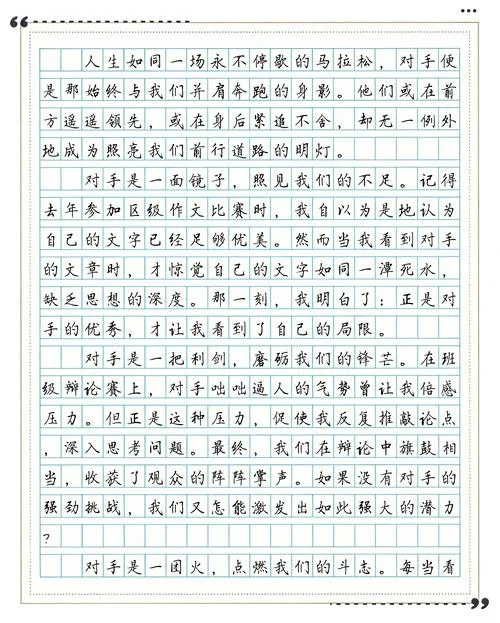 人生如同一场永不停歇的马拉松，对手便
是那始终与我们并肩奔跑的身影。他们或在前
方遥遥领先，或在身后紧追不舍，却无一例外
地成为照亮我们前行道路的明灯。
对手是一面镜子，照见我们的不足。记得
去年参加区级作文比赛时，我自以为是地认为
自己的文字已经足够优美。然而当我看到对手
的文章时，才惊觉自己的文字如同一潭死水，
缺乏思想的深度。那一刻，我明白了：正是对
手的优秀，才让我看到了自己的局限。
对手是一把利剑，磨砺我们的锋芒。在班
级辩论赛上，对手咄咄逼人的气势曾让我倍感
压力。但正是这种压力，促使我反复推敲论点
，深入思考问题。最终，我们在辩论中旗鼓相
当，收获了观众的阵阵掌声。如果没有对手的
强劲挑战，我们又怎能激发出如此强大的潜力
？
对手是一团火，点燃我们的斗志。每当看